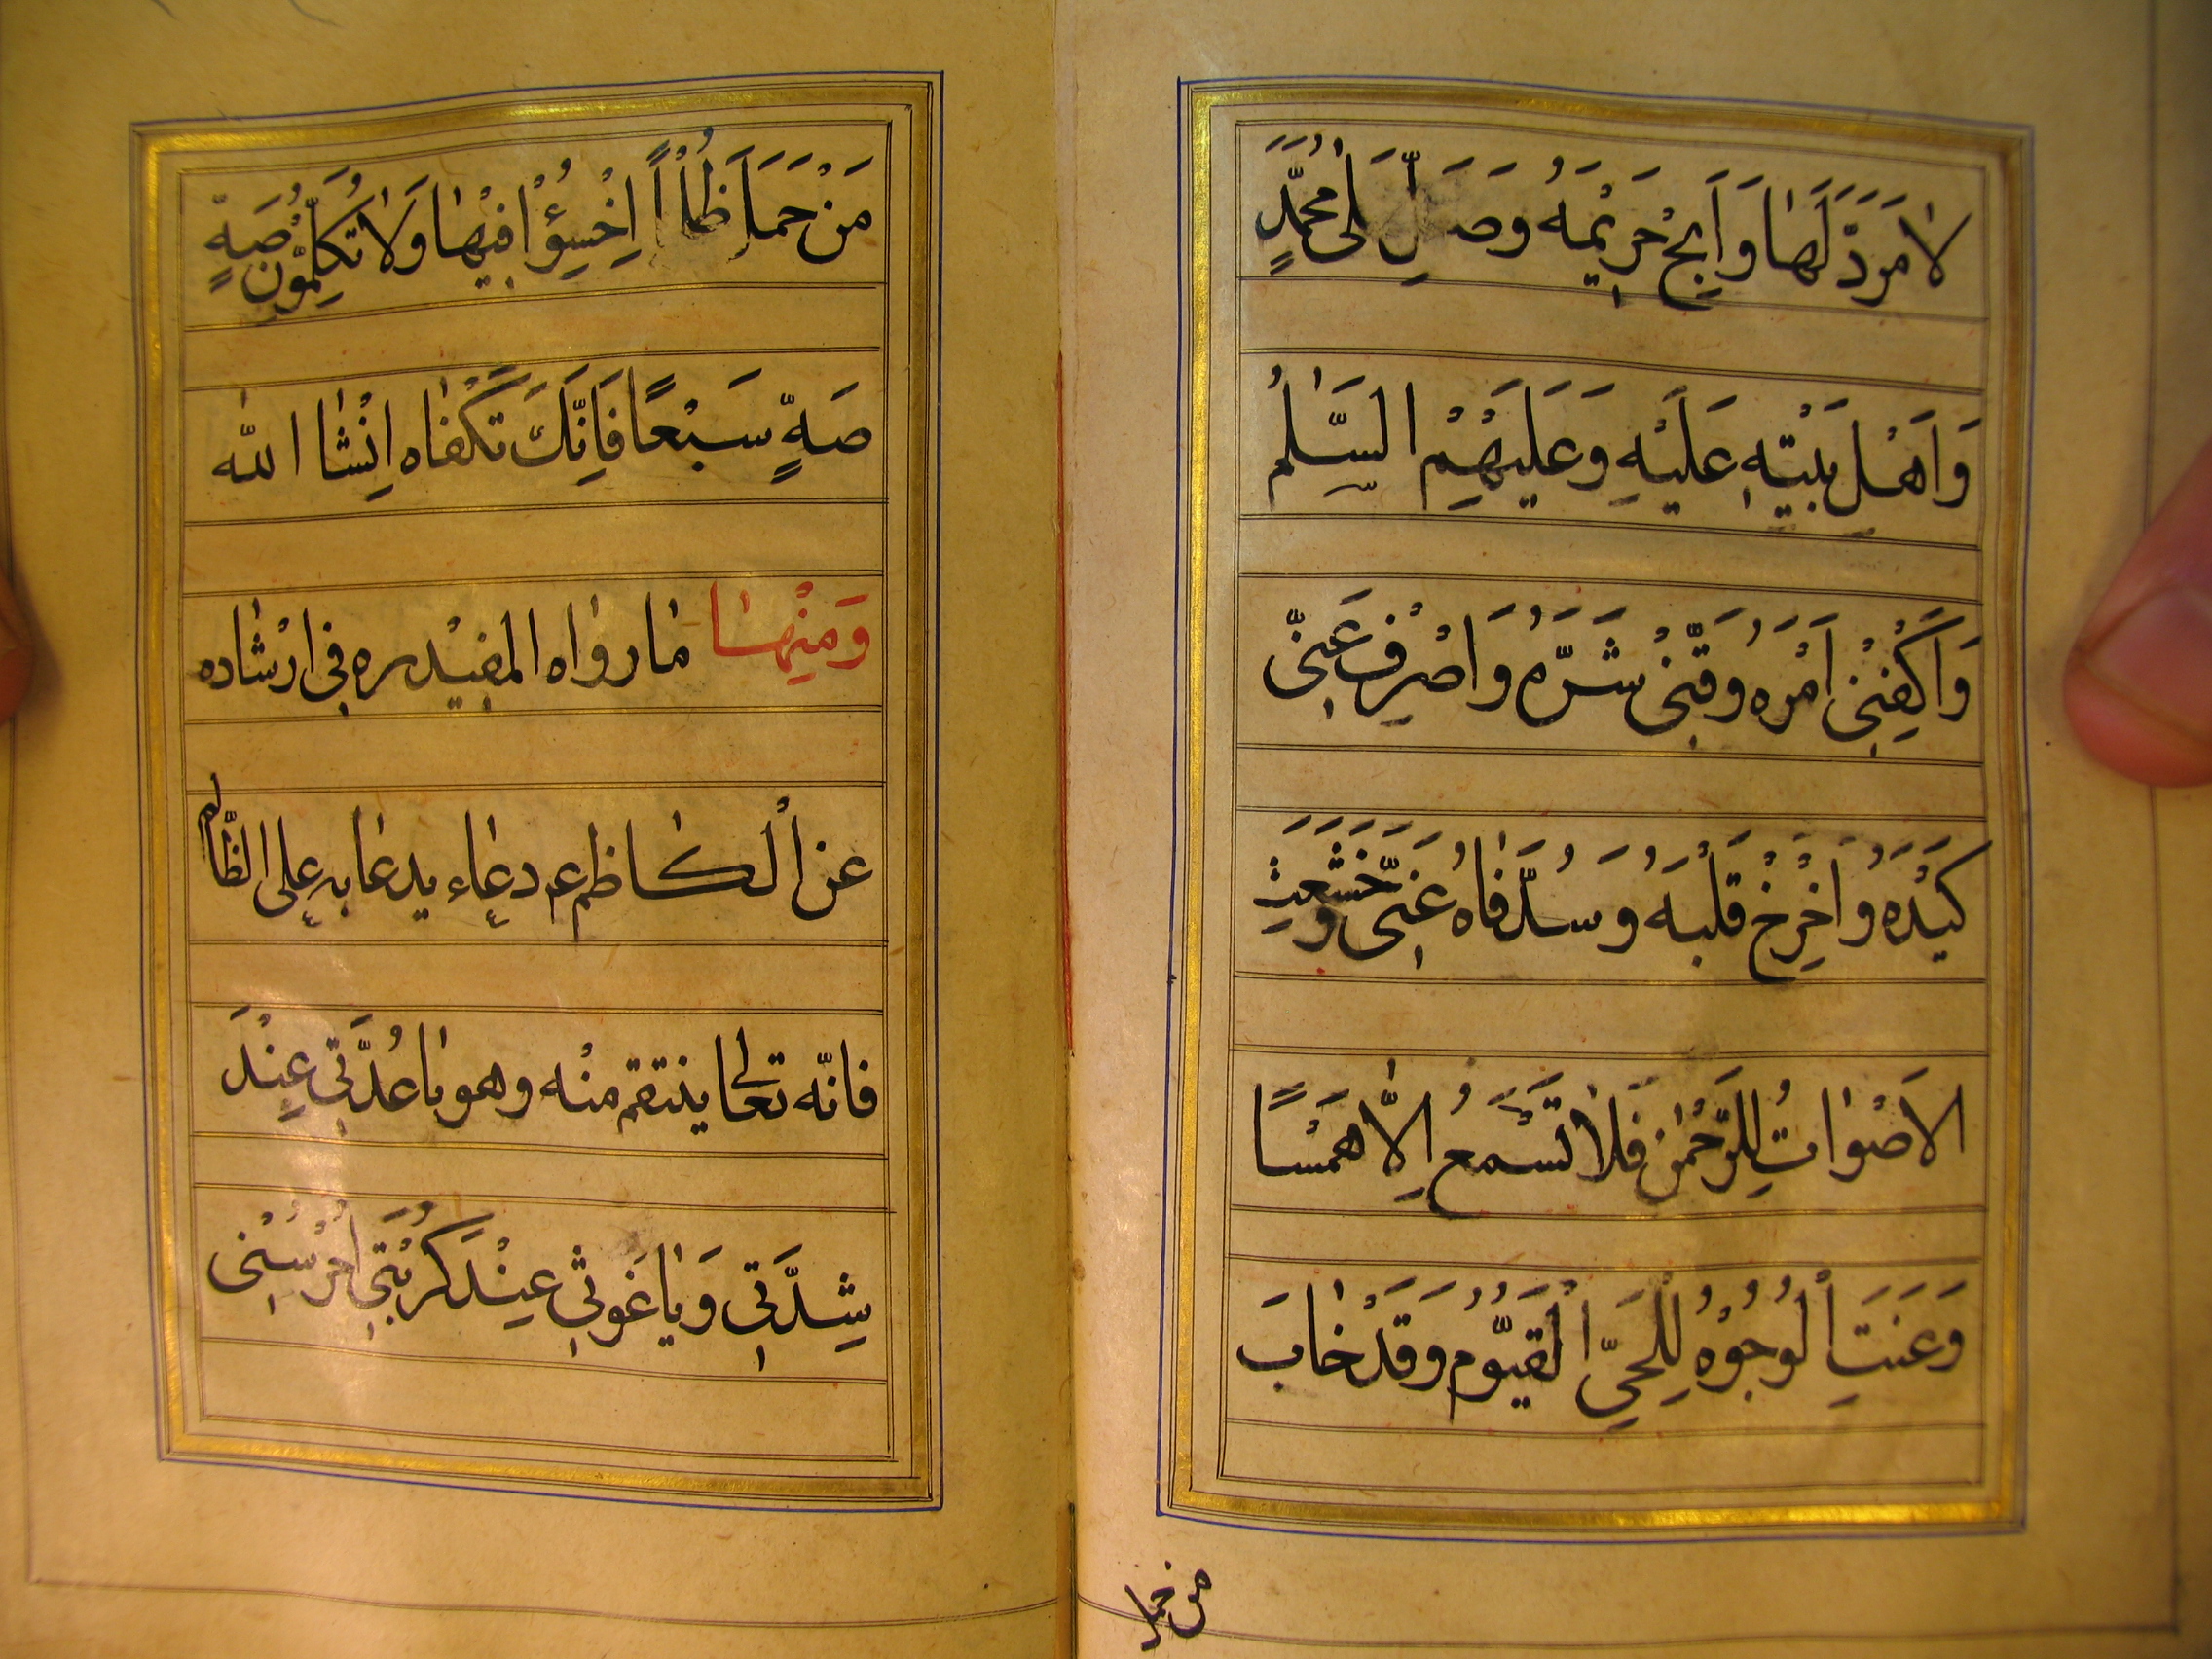 لا مَرَدَّ لَهٰا وَاَبِحْ حَرِیْمَهُ وَصَلِّ عَلٰی مُحَمَّدٍ
وَاَهْلِ بَیْتِهِ عَلَیْهِ وَعَلَیْهِمُ السَّلٰمُ
وَاَكْفِنِیْ اَمْرَهُ وَقِنِیْ شَرَّهُ وَاصْرِفْ عَنِّی
كَیْدَهُ وَاَحْرِجْ قَلْبَهُ وَسُدَّ فٰاهُ عَنِّی وَخَشَعَتِ
الاَصْوٰاتُ لِلرَّحْمٰنِ فَلاٰ تَسْمَعُ اِلاّٰ هَمْسًا
وَعَنَتِ اْلوُجُوْهُ لِلْحَیِّ اْلقَیُّوْمُ وَقَدْ خٰابَ
من حمل
مَنْ حَمَلَ ظُلْمًا اِخْسِؤُا فِیْهٰا وَلاٰ تُكَلِّمُوْنِ صَهٍ
صَهٍ سَبْعًا فَاِنَّكَ تَكْفٰاه اِنْشٰا اللّٰه
وَمِنْهٰا مٰا رواٰه المفِیْد ره فی ارْشٰاده
عن اْلكٰاظم ع م دعٰاء یدعٰا به علی الظّٰالم
فانّه تعٰالی ینتقم منْه وهو یٰا عُدَّتِی عِنْدَ
شِدَّتِی وَ یٰا غَوثِی عِنْدَ كُرْبَتِی اُحْرُسْنِی